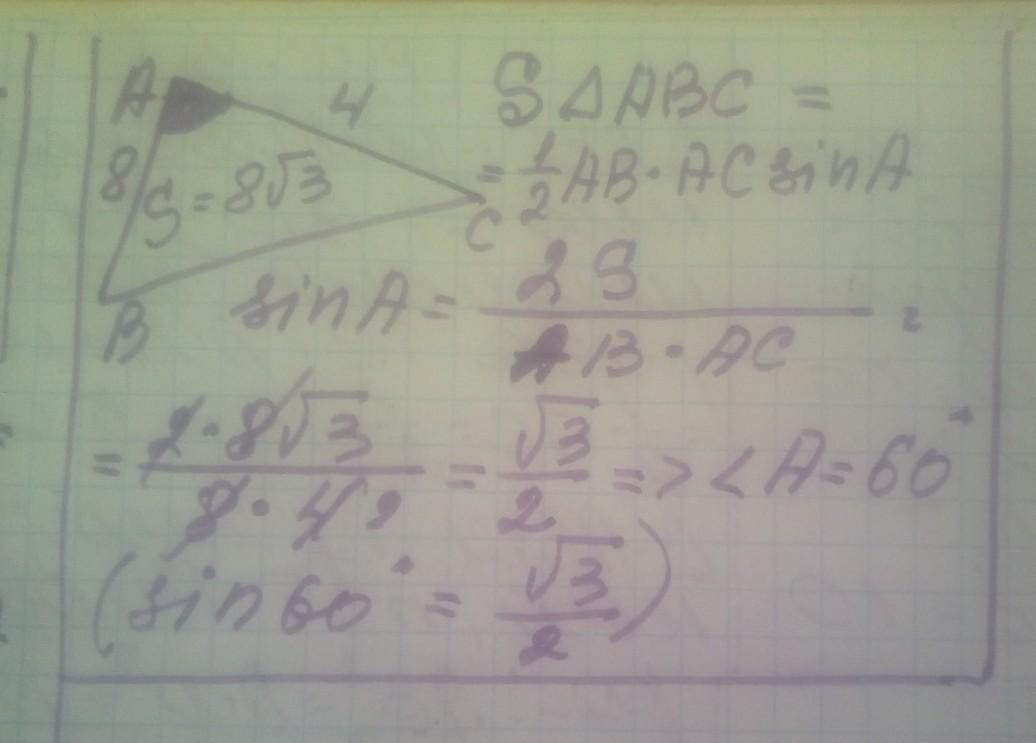 A 4 S △ ABC =
8 S = 8√3 C = 1/2 AB · AC sin A
B sin A = 2S / AB · AC =
= 2 · 8√3 / 8 · 4 2 = √3 / 2 => < A = 60°
(sin 60° = √3 / 2)